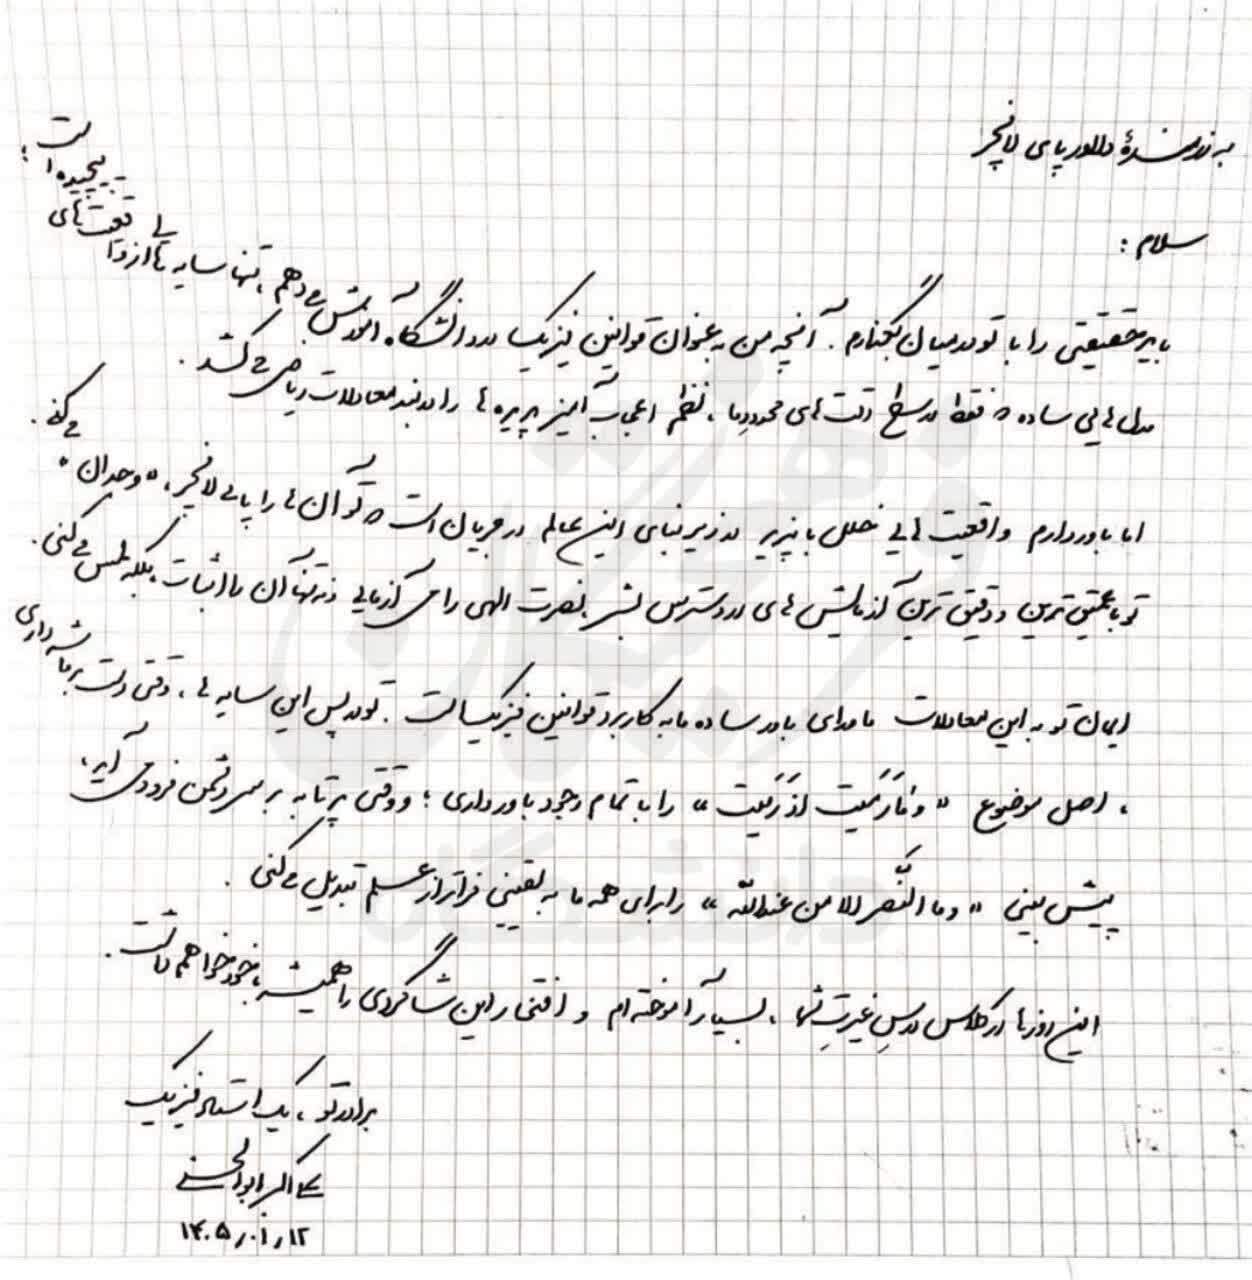 به رزمندهٔ دلاور پای لانچر
سلام :
باید حقیقتی را با تو در میان بگذارم . آنچه من به عنوان قوانین فیزیک در دانشگاه آموزش می دهم ، تنها سایه ای از واقعیت های پیچیده است ؛
مدل هایی ساده که فقط در سطح دقت های محدود ما ، نظم اعجاب آمیز پدیده ها را در بند معادلات ریاضی می کشد .
اما باور دارم واقعیت هایی خلل ناپذیر در زیر بنای این عالم در جریان است که تو آن ها را پای لانچر ، « وجدان » می کنی .
تو با عمیق ترین و دقیق ترین آزمایش های در دسترس بشر ، نصرت الهی را می آزمایی و نه تنها آن را اثبات ، بلکه لمس می کنی .
ایمان تو به این معادلات ماورای باور ساده ما به کاربرد قوانین فیزیک است . تو در پس این سایه ها ، وقتی دست بر ماشه داری
، اصل موضوع « وَ مَا رَمَیتَ اِذ رَمَیتَ » را با تمام وجود باور داری ؛ و وقتی پرتابه بر سر دشمن فرود می آید ،
پیش بینی « و ما النَّصر الا من عندالله » را برای همه ما به یقینی فراتر از علم تبدیل می کنی .
این روزها در کلاس درسِ غیرتِ شما ، بسیار آموخته ام و افتخار این شاگردی را همیشه با خود خواهم داشت .
برادر تو ، یک استاد فیزیک
علی اکبر ابوالحسنی
۱۴۰۵/۰۱/۱۲
دانشگاه